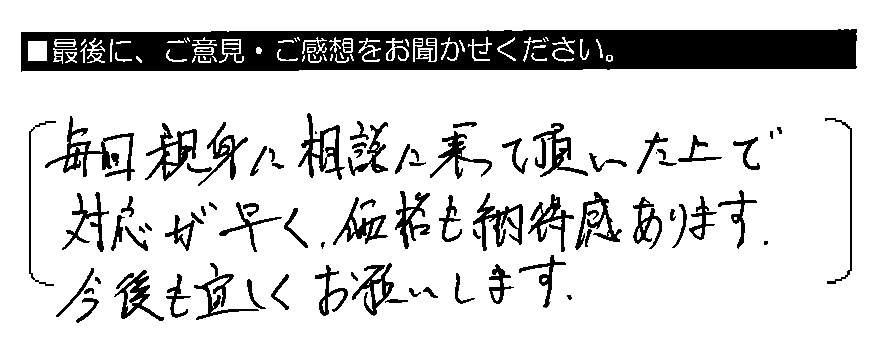 ■最後に、ご意見・ご感想をお聞かせください。
毎回親身に相談に乗って頂いた上で
対応が早く、価格も納得感あります.
今後も宜しくお願いします.